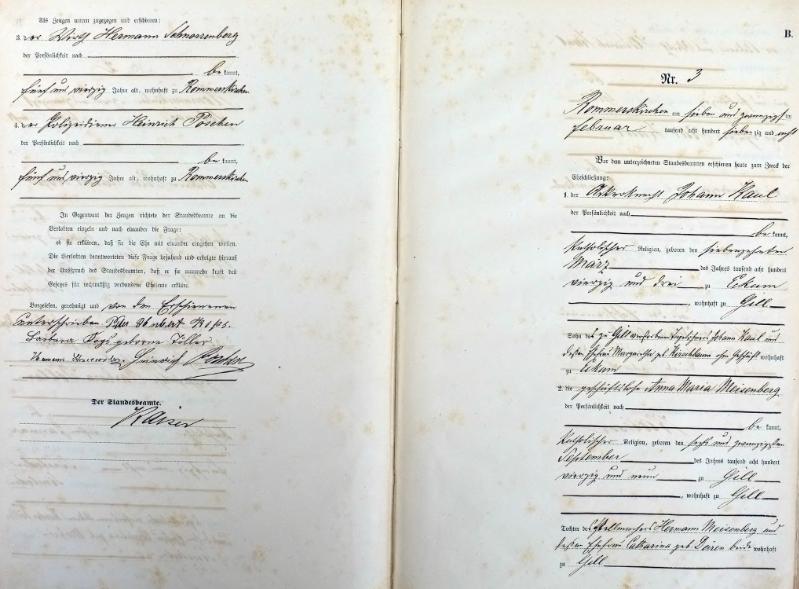 Als Zeugen waren zugezogen und erschienen:
3. der Wirth Hermann Schnorrenberg
der Persönlichkeit nach
be kannt,
fünf und vierzig Jahre alt, wohnhaft zu Rommerskirchen
4. der Polizeidiener Heinrich Poschen
der Persönlichkeit nach
be kannt,
fünf und vierzig Jahre alt, wohnhaft zu Rommerskirchen
In Gegenwart der Zeugen richtete der Standesbeamte an die
Verlobten einzeln und nach einander die Frage:
ob sie erklären, daß sie die Ehe mit einander eingehen wollen.
Die Verlobten beantworteten diese Frage bejahend und erfolgte hierauf
der Ausspruch des Standesbeamten, daß er sie nunmehr kraft des
Gesetzes für rechtmäßig verbundene Eheleute erkläre.
Vorgelesen, genehmigt und von den Erschienenen
unterschrieben
Barbara geborne
Heinrich
Der Standesbeamte.
Kaiser
B.
Nr. 3
Rommerskirchen am sieben und zwanzigst en
Februar tausend acht hundert siebenzig und acht
Vor dem unterzeichneten Standesbeamten erschienen heute zum Zweck der
Eheschließung:
1. der Ackerknecht Johann Kaul
der Persönlichkeit nach
be kannt,
katholischer Religion, geboren den siebenzehnten
März des Jahres tausend acht hundert
vierzig und drei zu Eckum
, wohnhaft zu Gill
Sohn des zu Gill verstorbenen Johann Kaul und
dessen Ehefrau Margaretha geb Kirschbaum wohnhaft
zu Eckum
2. die geschäftslose Anna Maria Meisenberg
der Persönlichkeit nach
be kannt,
katholischer Religion, geboren den sechs und zwanzigsten
September des Jahres tausend acht hundert
vierzig und neun zu Gill
, wohnhaft zu Gill
Tochter des Stellmachers Hermann Meisenberg und
dessen Ehefrau Catharina geb Doren beide wohnhaft
zu Gill